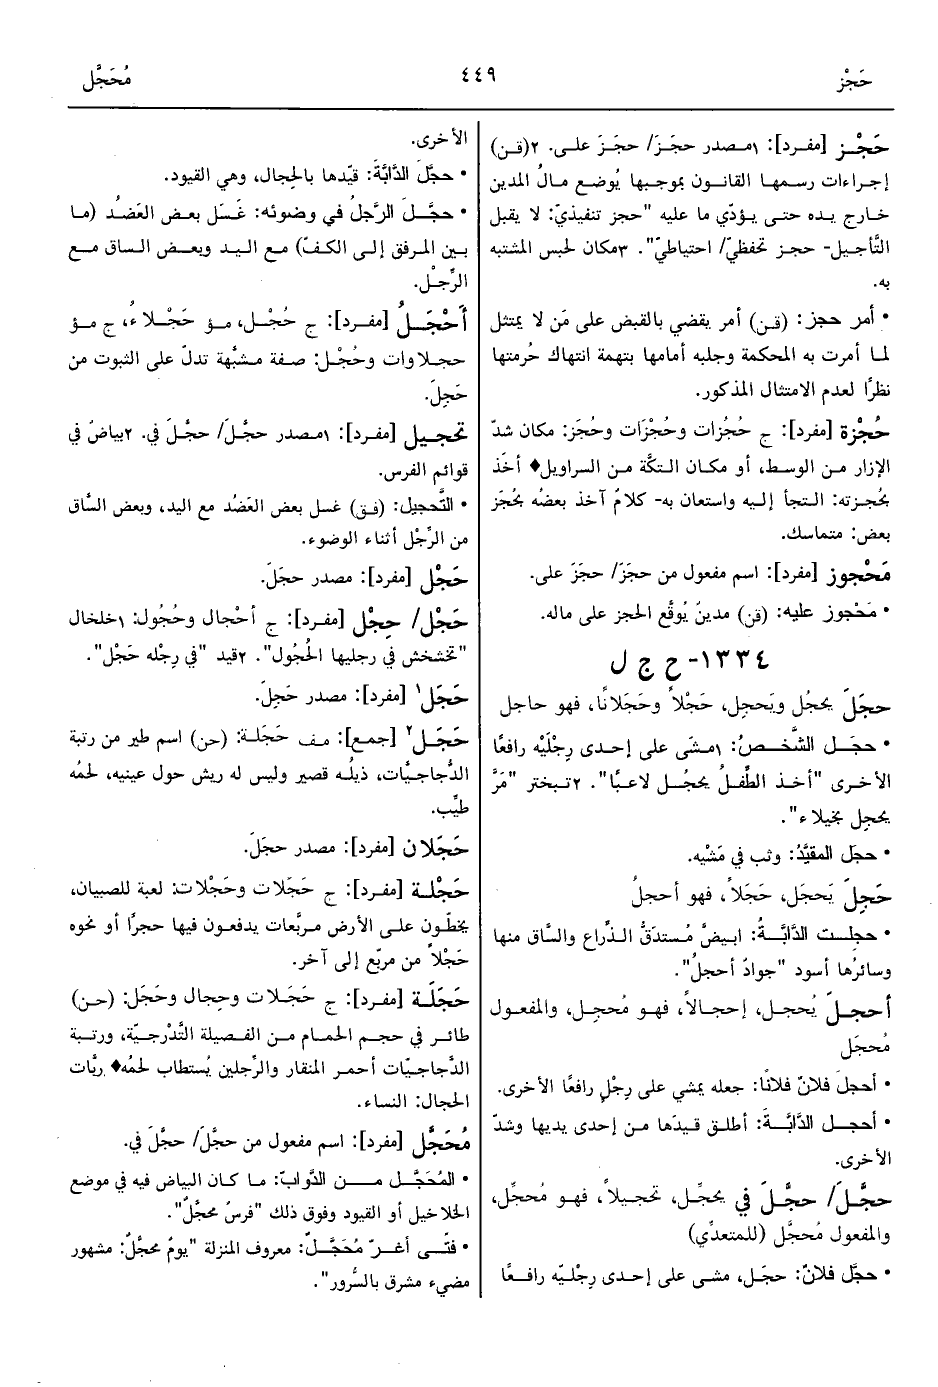 حَجْز
٤٤٩
مُحَجَّل
حَجْز [مفرد]: ١مصدر حجَزَ/ حجَزَ على. ٢(قن)
إجراءات رسمها القانون بموجبها يُوضع مالُ المدين
خارج يده حتى يؤدّي ما عليه "حجز تنفيذيّ: لا يقبل
التَّأجيل- حجز تحفظيّ/ احتياطيّ". ٣مكان لحبس المشتبه
به.
• أمر حجز: (قن) أمر يقضي بالقبض على مَن لا يمتثل
لما أمرت به المحكمة وجلبه أمامها بتهمة انتهاك حُرمتها
نظرًا لعدم الامتثال المذكور.
حُجْزة [مفرد]: ج حُجُزات وحُجْزَات وحُجَز: مكان شدّ
الإزار من الوسط، أو مكان التكَّة من السراويل♦ أخَذ
بحُجزته: التجأ إليه واستعان به- كلامٌ آخذ بعضُه بحُجَز
بعض: متماسك.
مَحْجوز [مفرد]: اسم مفعول من حجَزَ/ حجَزَ على.
• مَحْجوز عليه: (قن) مدينٌ يُوقَّع الحجز على ماله.
١٣٣٤- ح ج ل
حجَلَ يحجُل ويَحجِل، حَجْلاً وحَجَلانًا، فهو حاجل
• حجَل الشَّخصُ: ١مشَى على إحدى رِجْلَيْه رافعًا
الأخرى "أخذ الطِّفلُ يحجُل لاعبًا". ٢تبختر "مَرَّ
يحجل بخيلاء".
• حجَل المقيَّدُ: وثب في مَشْيه.
حَجِلَ يَحجَل، حَجَلاً، فهو أحجلُ
• حجِلت الدَّابَّةُ: ابيضَّ مُستدَقُّ الذِّراع والسَّاق منها
وسائرُها أسود "جوادٌ أحجلُ".
أحجلَ يُحجل، إحجالاً، فهو مُحجِل، والمفعول
مُحجَل
• أحجلَ فلانٌ فلانًا: جعله يمشي على رِجْلٍ رافعًا الأخرى.
• أحجل الدَّابَّةَ: أطلق قيدَها من إحدى يديها وشدّ
الأخرى.
حجَّلَ/ حجَّلَ في يحجِّل، تحجيلاً، فهو مُحجِّل،
والمفعول مُحجَّل (للمتعدِّي)
• حجَّل فلانٌ: حجَل، مشى على إحدى رِجْليْه رافعًا
الأخرى.
• حجَّل الدَّابَّةَ: قيّدها بالحِجال، وهي القيود.
• حجَّل الرَّجلُ في وضوئه: غَسَل بعض العَضُد (ما
بين المرفق إلى الكفّ) مع اليد وبعض الساق مع
الرِّجْل.
أَحْجَلُ [مفرد]: ج حُجْل، مؤ حَجْلاءُ، ج مؤ
حجلاوات وحُجْل: صفة مشبَّهة تدلّ على الثبوت من
حَجِلَ.
تَحجيل [مفرد]: ١مصدر حجَّلَ/ حجَّلَ في. ٢بياضٌ في
قوائم الفرس.
• التَّحجيل: (فق) غسل بعض العَضُد مع اليد، وبعض السَّاق
من الرِّجْل أثناء الوضوء.
حَجْل [مفرد]: مصدر حجَلَ.
حَجْل/ حِجْل [مفرد]: ج أحْجال وحُجُول: ١خلخال
"تخشخش في رجليها الحُجُول". ٢قيد "في رِجْله حَجْل".
حَجَل¹ [مفرد]: مصدر حَجِلَ.
حَجَل² [جمع]: مف حَجَلة: (حن) اسم طير من رتبة
الدَّجاجيَّات، ذيلُه قصير وليس له ريش حول عينيه، لحمُه
طيِّب.
حَجَلان [مفرد]: مصدر حجَلَ.
حَجْلة [مفرد]: ج حَجَلات وحَجْلات: لعبة للصبيان،
يخطّون على الأرض مربَّعات يدفعون فيها حجرًا أو نحوه
حَجْلاً من مربّع إلى آخر.
حَجَلَة [مفرد]: ج حَجَلات وحِجال وحَجَل: (حن)
طائر في حجم الحمام من الفصيلة التَّدْرجيّة، ورتبة
الدَّجاجيّات أحمر المنقار والرِّجلين يُستطاب لحمُه♦ ربَّات
الحجال: النساء.
مُحَجَّل [مفرد]: اسم مفعول من حجَّلَ/ حجَّلَ في.
• المُحَجَّل من الدَّوابّ: ما كان البياض فيه في موضع
الخلاخيل أو القيود وفوق ذلك "فرسٌ محجَّلٌ".
• فتًى أغرّ مُحَجَّلٌ: معروف المنزلة "يومٌ محجَّلٌ: مشهور
مضيء مشرق بالسُّرور".